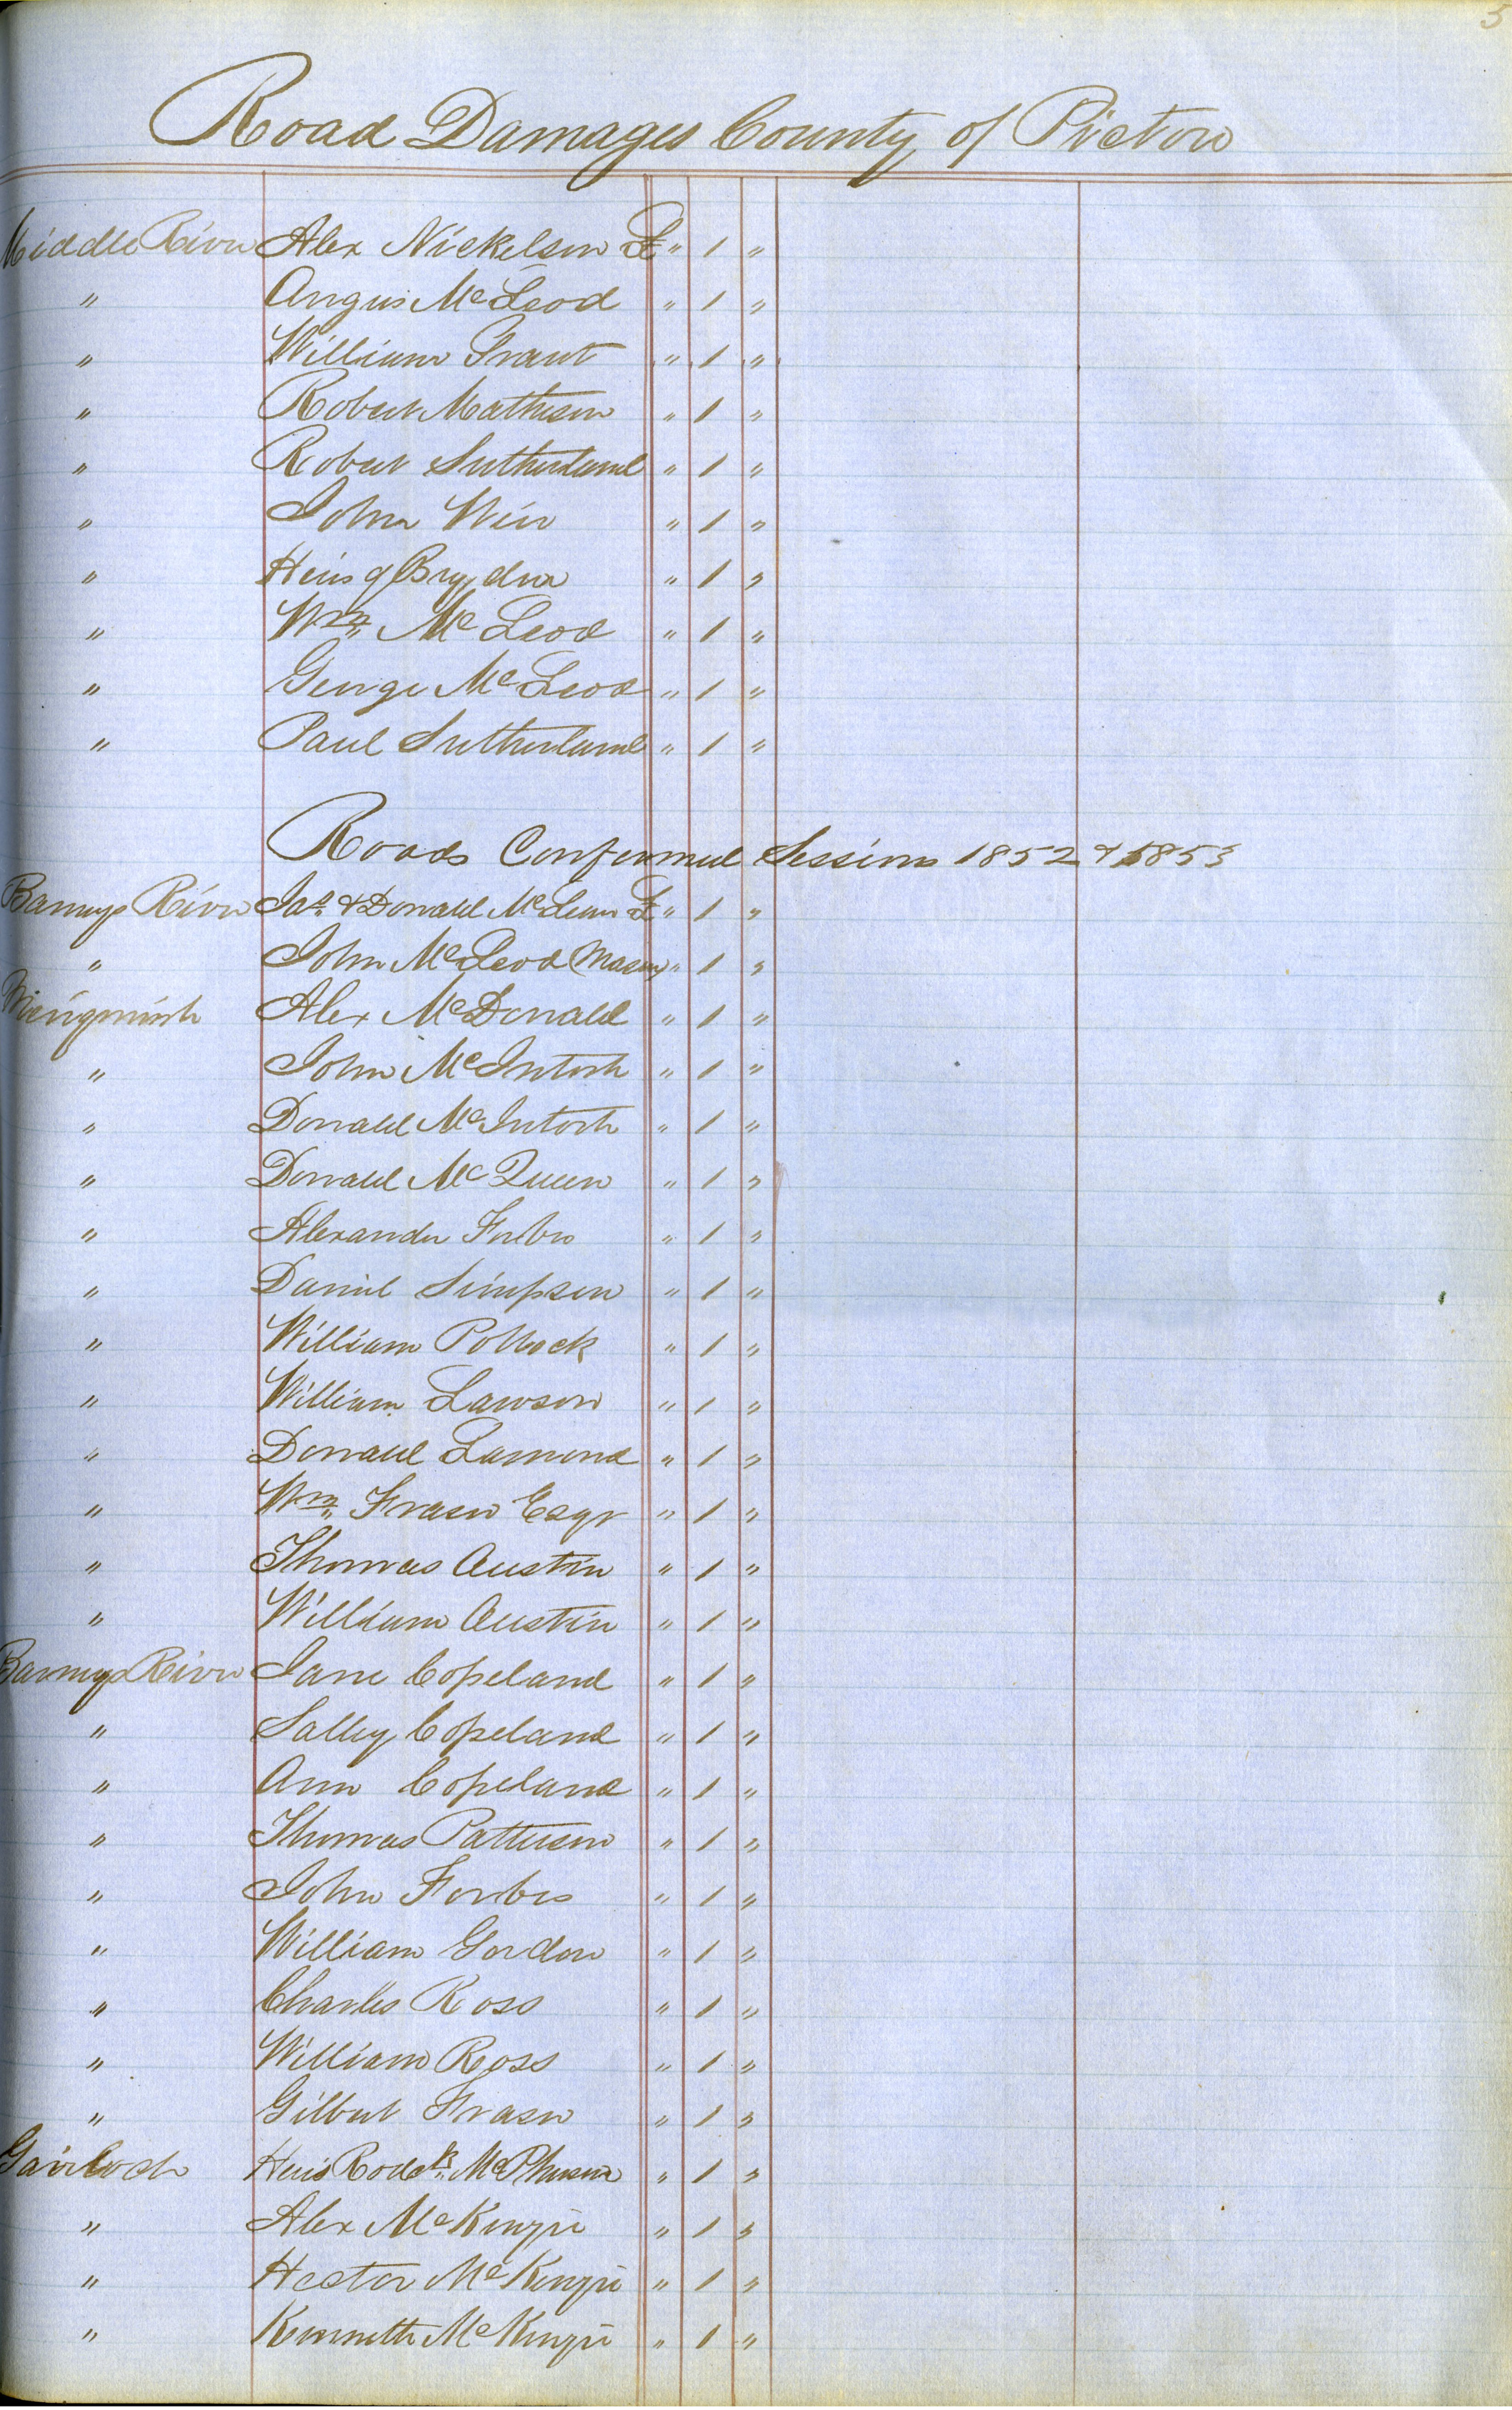 5
Road Damages County of Pictou
Middle River Alex Nickelson £ " 1 "
" Angus McLeod " 1 "
" William Grant " 1 "
" Robert Matheson " 1 "
" Robert Sutherland " 1 "
" John Weir " 1 "
" Heirs of Bryden " 1 "
" Wm McLeod " 1 "
" George McLeod " 1 "
" Paul Sutherland " 1 "
Roads Confirmed Sessions 1852 & 1853
Barneys River Jas & Donald McLean £ " 1 "
" John McLeod (Mason) " 1 "
Merigomish Alex McDonald " 1 "
" John McIntosh " 1 "
" Donald McIntosh " 1 "
" Donald McQueen " 1 "
" Alexander Forbes " 1 "
" Daniel Simpson " 1 "
" William Pollock " 1 "
" William Lawson " 1 "
" Donald Lamond " 1 "
" Wm Fraser Esqr " 1 "
" Thomas Austin " 1 "
" William Austin " 1 "
Barneys River Jane Copeland " 1 "
" Salley Copeland " 1 "
" Ann Copeland " 1 "
" Thomas Patterson " 1 "
" John Forbes " 1 "
" William Gordon " 1 "
" Charles Ross " 1 "
" William Ross " 1 "
" Gilbert Fraser " 1 "
Gairloch Heirs Rodck McPherson " 1 "
" Alex McKenzie " 1 "
" Hector McKenzie " 1 "
" Kenneth McKenzie " 1 "